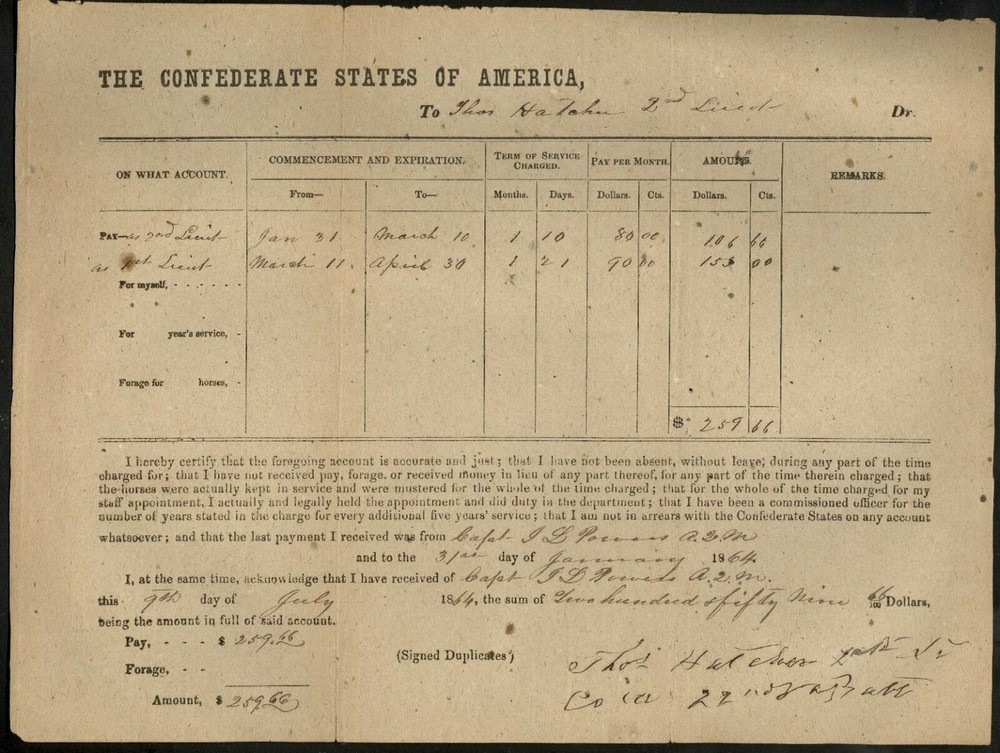 THE CONFEDERATE STATES OF AMERICA,
To Thos Hatcher 2nd Lieut Dr.
ON WHAT ACCOUNT. COMMENCEMENT AND EXPIRATION. TERM OF SERVICE CHARGED. PAY PER MONTH. AMOUNT. REMARKS.
From— To— Months. Days. Dollars. Cts. Dollars. Cts.
PAY—as 2nd Lieut Jan 31 March 10 1 10 80 00 106 66
as 1st Lieut March 11 April 30 1 21 90 00 153 00
For myself, - - - - - -
For year's service, -
Forage for horses, -
$ 259 66
I hereby certify that the foregoing account is accurate and just; that I have not been absent, without leave, during any part of the time
charged for; that I have not received pay, forage, or received money in lieu of any part thereof, for any part of the time therein charged; that
the horses were actually kept in service and were mustered for the whole of the time charged; that for the whole of the time charged for my
staff appointment, I actually and legally held the appointment and did duty in the department; that I have been a commissioned officer for the
number of years stated in the charge for every additional five years' service; that I am not in arrears with the Confederate States on any account
whatsoever; and that the last payment I received was from Capt J D Powers A.Q.M
and to the 31st day of January 1864.
I, at the same time, acknowledge that I have received of Capt J D Powers A.Q.M.
this 9th day of July 1864, the sum of Two hundred & fifty Nine 66/100 Dollars,
being the amount in full of said account.
Pay, - - - $ 259.66
Forage, - -
(Signed Duplicates)
Thos Hatcher 1st Lt
Amount, $ 259.66
Co A 22nd Va Batt